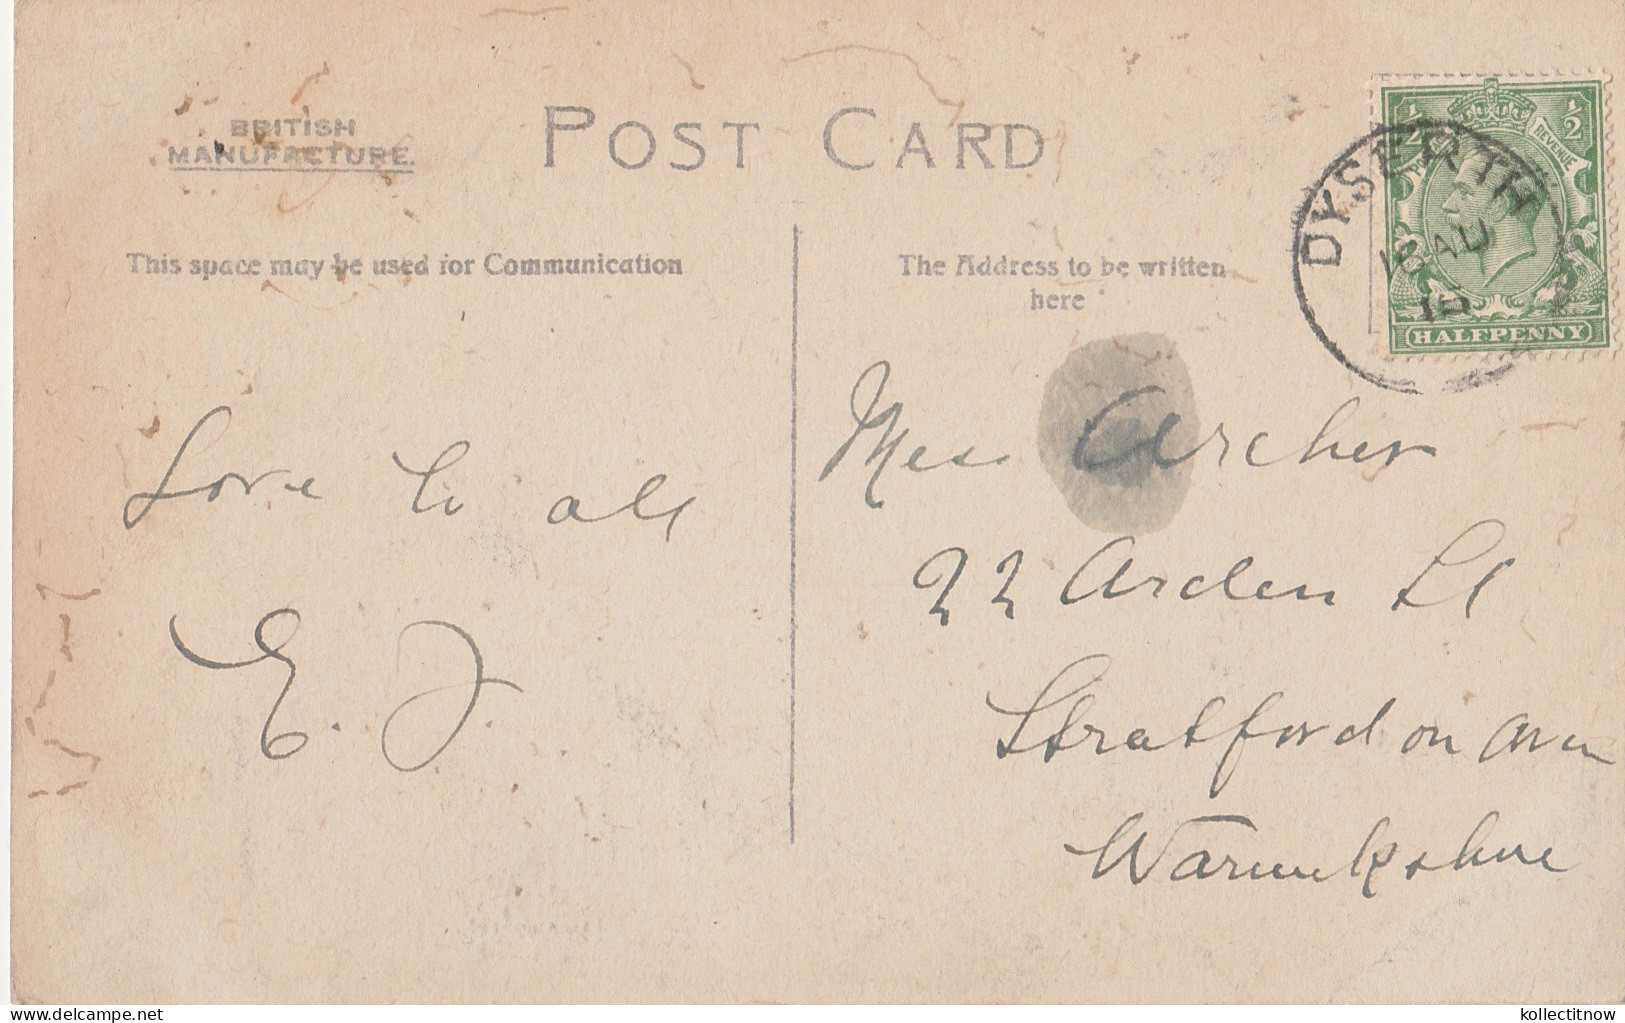 BRITISH
MANUFACTURE.
POST CARD
This space may be used for Communication
The Address to be written
here
DYSERTH
AU
½ ½
REVENUE
HALFPENNY
Love to all
E. J.
Miss Archer
22 Arden St
Stratford on Avon
Warwickshire
delcampe.net
kollectitnow